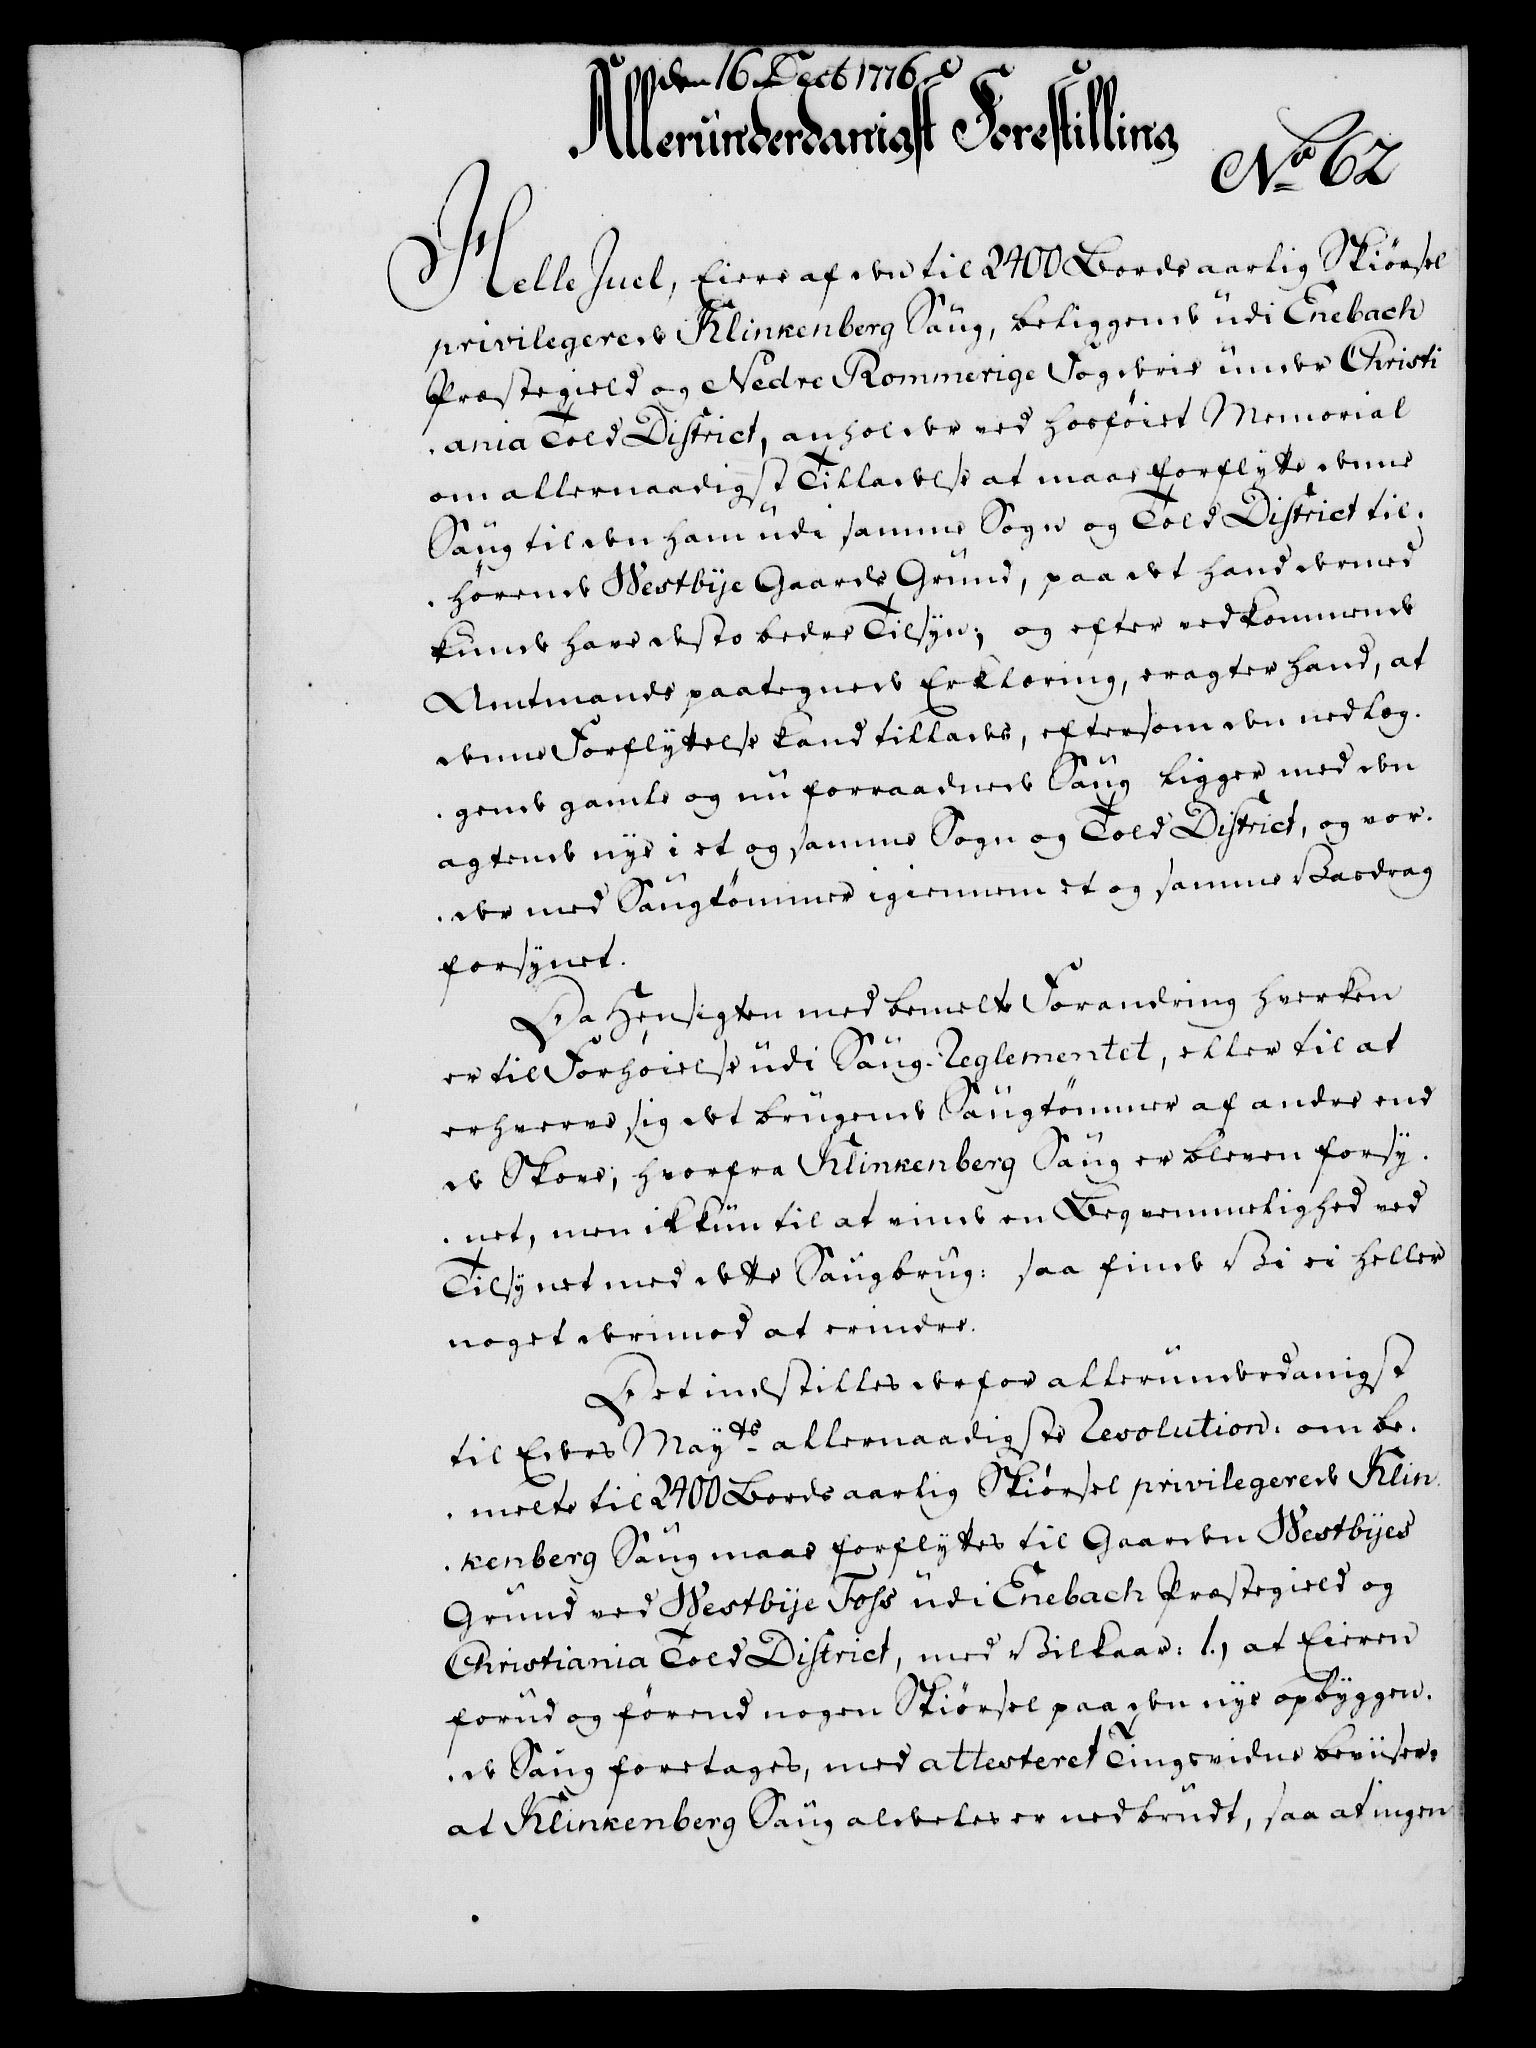 den 16 Decb 1776
Allerunderdanigst Forestilling
No 62
Helle Juel, Eiere af den til 2400 Bords aarlig Skiørsel
privilegerede Klinkenberg Saug, beliggende udi Enebach
Præstegield og Nedre Rommerige Fogderie under Christi
-ania Told District, anholder ved hosføiet Memorial
om allernaadigst Tilladelse at maae forflytte denne
Saug til den ham udi samme Sogn og Told District til-
-hørende Westbije Gaards Grund, paa det hand dermed
kunde have desto bedre Tilsyn; og efter vedkommende
Amtmands paategnede Erklæring, eragter hand, at
denne Forflyttelse kand tillades, eftersom den nedlæg-
-gende gamle og nu forraadnede Saug ligger med den
agtende nye i et og samme Sogn og Told District, og vor-
-der med Saugtømmer igiennem et og samme Vasdrag
forsynet.
Da Hensigten med bemelte Forandring hverken
er til Forhøielse udi Saug-Reglementet, eller til at
erhverve sig det brugende Saugtømmer af andre end
de Skove; hvorfra Klinkenberg Saug er bleven forsy-
-net, men ikkun til at vinde en Beqvemmelighed ved
Tilsynet med dette Saugbrug: saa finde Vi ei heller
noget derimod at erindre.
Det indstilles derfor allerunderdanigst
til Eders Mayts allernaadigste Resolution: om be-
-melte til 2400 Bords aarlig Skiørsel privilegerede Klin-
-kenberg Saug maae forflyttes til Gaarden Westbijes
Grund ved Westbije Foss udi Enebach Præstegield og
Christiania Told District, med Vilkaar: 1., at Eieren
forud og førend nogen Skiørsel paa den nye opbyggen-
-de Saug foretages, med attesteret Tingsvidne beviiser,
at Klinkenberg Saug aldeeles er nedbrudt, saa at ingen